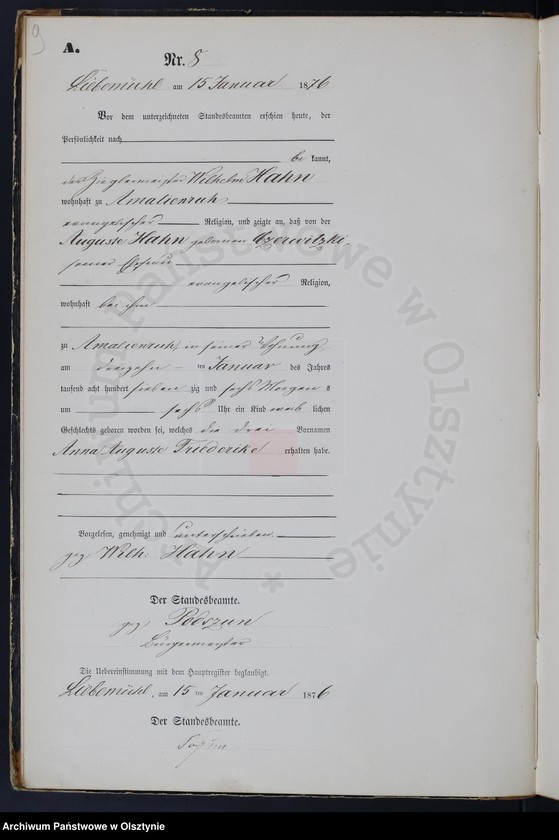 9
A.
Nr. 8
Liebemühl am 15 Januar 1876
Vor dem unterzeichneten Standesbeamten erschien heute, der
Persönlichkeit nach
be kannt,
der Zieglermeister Wilhelm Hahn
wohnhaft zu Amalienruh
evangelischer Religion, und zeigte an, daß von der
Auguste Hahn geborenen Czerwitzki
seiner Ehefrau
evangelischer Religion,
wohnhaft bei ihm
zu Amalienruh, in seiner Wohnung
am ten Januar des Jahres
tausend acht hundert sieben zig und sechs Morgens
um sechs Uhr ein Kind weib lichen
Geschlechts geboren worden sei, welches die drei Vornamen
Anna Auguste Friederike erhalten habe.
Vorgelesen, genehmigt und unterschrieben.
gez Wilh. Hahn
Der Standesbeamte.
gez Podszun
Bürgermeister
Die Uebereinstimmung mit dem Hauptregister beglaubigt.
Liebemühl, am 15 ten Januar 1876
Der Standesbeamte.
Archiwum Państwowe w Olsztynie *
Archiwum Państwowe w Olsztynie